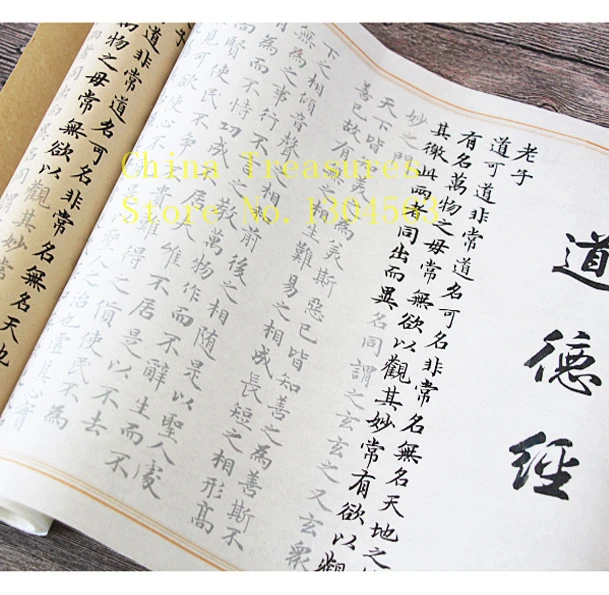 道德經
老子
道可道非常道名可名非常名無名天地之
有名萬物之母常無欲以觀其妙常有欲以觀
其徼此兩者同出而異名同謂之玄玄之又玄衆
妙之門
天下皆為美斯惡已皆知善之為善斯不
善已故有之相生難易之相成長短之相形高
下之相傾音聲相前後之相隨是以聖人處
無為之事行不之教萬物作而不辭生而不
為而不恃功成居夫惟不居是以不去不
尚賢使民不爭貴難得之貨使民不為
見可欲使心不聖人之治也虛其心實
子
道非常道名可名非常名無名天地
萬物之母常無欲以觀其妙常
China Treasures
Store No. 1304563